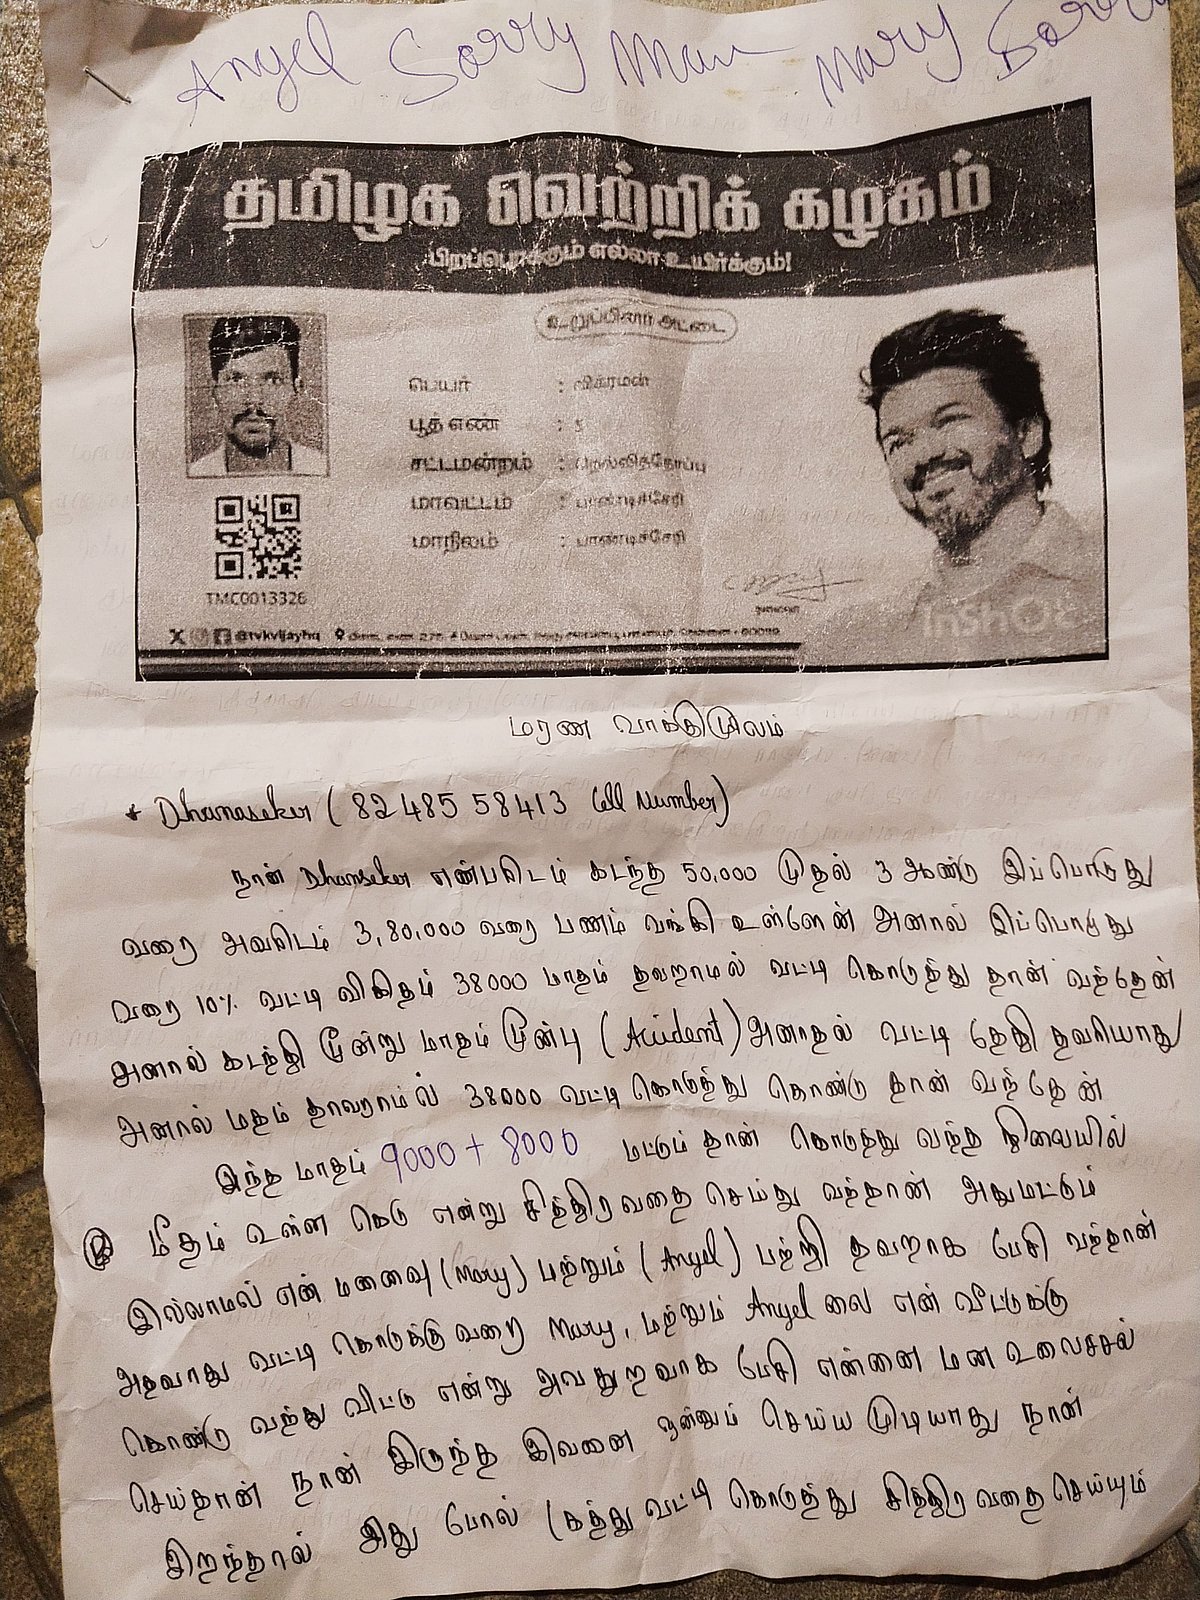 Angel Sorry Mam Mary Sorry
தமிழக வெற்றிக் கழகம்
பிறப்பொக்கும் எல்லா உயிர்க்கும்!
உறுப்பினர் அட்டை
பெயர் : விக்ரமன்
பூத் எண் : 5
சட்டமன்றம் : நெல்லித்தோப்பு
மாவட்டம் : பாண்டிச்சேரி
மாநிலம் : பாண்டிச்சேரி
TMC0013326
தலைவர்
@tvkvijayhq
InShOt
மரண வாக்குமூலம்
* Dhanaseker ( 82485 58413 Cell Number)
நான் Dhanseker என்பரிடம் கடந்த 50,000 முதல் 3 ஆண்டு இப்பொழுது
வரை அவரிடம் 3,80,000 வரை பணம் வங்கி உள்ளேன் அனால் இப்பொழுது
வரை 10% வட்டி விகிதம் 38000 மாதம் தவறாமல் வட்டி கொடுத்து தான் வந்தேன்
அனால் கடந்தி மூன்று மாதம் முன்பு (Accident) அனாதல் வட்டி தேதி தவறியாது
அனால் மதம் தாவராமல் 38000 வட்டி கொடுத்து கொண்டு தான் வந்தேன்
இந்த மாதம் 9000 + 8000 மட்டும் தான் கொடுத்து வந்த நிலையில்
மீதம் உள்ள கெடு என்று சித்திரவதை செய்து வந்தான் அதுமட்டும்
இல்லாமல் என் மனைவு (Mary) மற்றும் (Angel) பற்றி தவறாக பேசி வந்தான்
அதவாது வட்டி கொடுக்கு வறை Mary, மற்றும் Angel லை என் வீட்டுக்கு
கொண்டு வந்து விட்டு என்று அவதுறவாக பேசி என்னை மன உலைச்சல்
செய்தான் நான் இருந்த இவனை ஒன்னும் செய்ய முடியாது நான்
இறந்தால் இது போல் (கத்து வட்டி கொடுத்து சித்திரவதை செய்யும்